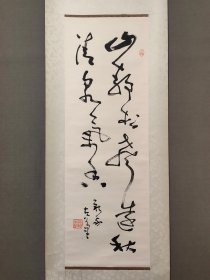 山靜松聲遠秋
清泉氣香